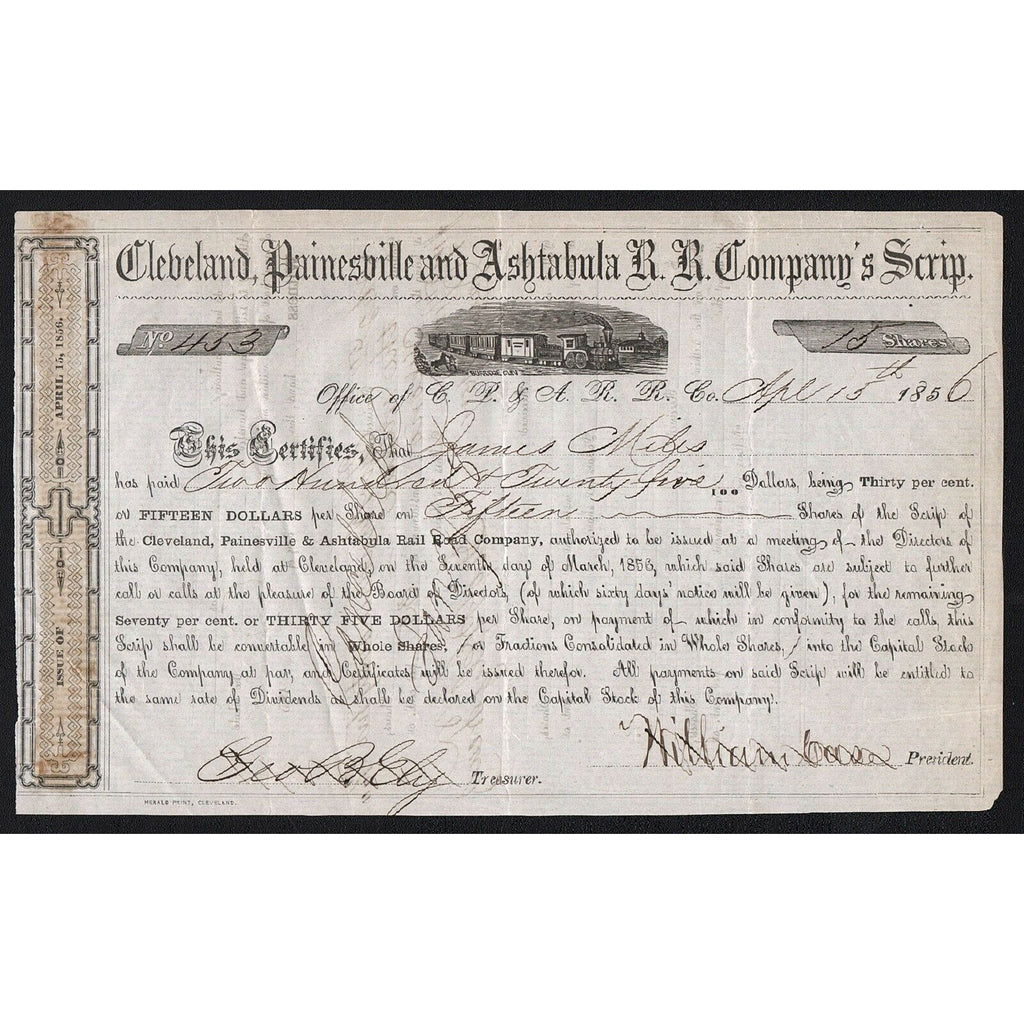 Cleveland, Painesville and Ashtabula R. R. Company's Scrip.
No. 453
15 Shares
Office of C. P. & A. R. R. Co. Apl 15th 1856
This Certifies, That James Miles
has paid Two Hundred & Twenty five 100 Dollars, being Thirty per cent.
or FIFTEEN DOLLARS per Share on Fifteen Shares of the Scrip of
the Cleveland, Painesville & Ashtabula Rail Road Company, authorized to be issued at a meeting of the Directors of
this Company, held at Cleveland, on the Seventh day of March, 1856, which said Shares are subject to further
call or calls at the pleasure of the Board of Directors, (of which sixty day's notice will be given), for the remaining
Seventy per cent. or THIRTY FIVE DOLLARS per Share, on payment of which in conformity to the calls, this
Scrip shall be convertable in Whole Shares, / or Fractions Consolidated in Whole Shares, / into the Capital Stock
of the Company at par, and Certificates will be issued therefor. All payments on said Scrip will be entitled to
the same rate of Dividends as shall be declared on the Capital Stock of this Company.
William Case President.
Geo. B. Ely Treasurer.
HERALD PRINT, CLEVELAND.
ISSUE OF APRIL 15, 1856.